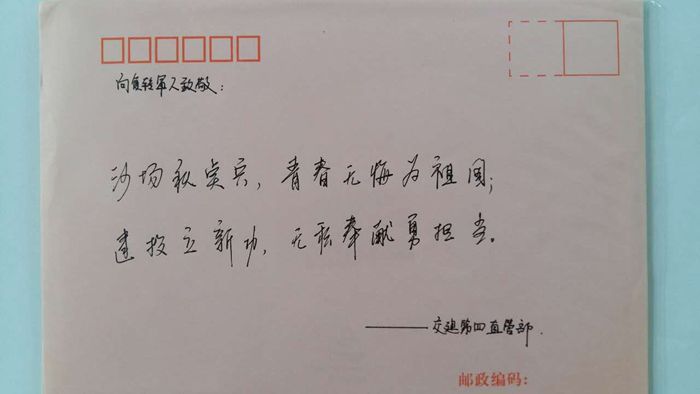 向复转军人致敬：
沙场秋点兵，青春无悔为祖国；
建投立新功，无私奉献勇担当。
——交建第四直管部.
邮政编码：